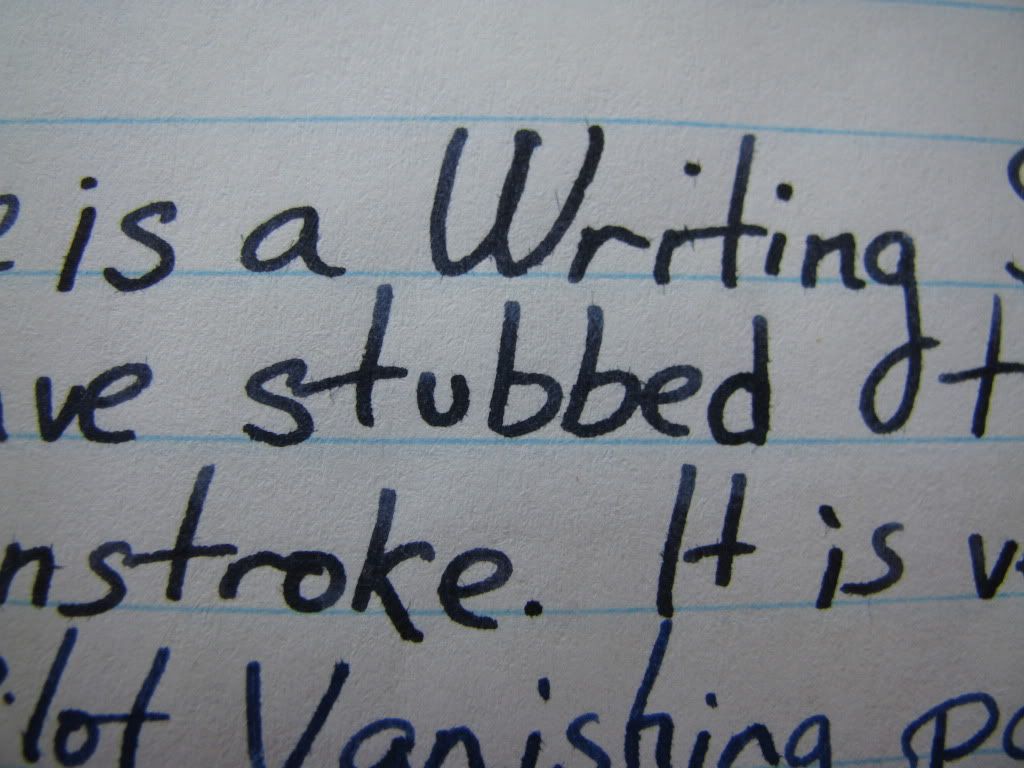 e is a Writing S
ve stubbed t
nstroke. It is v
Pilot Vanishing po